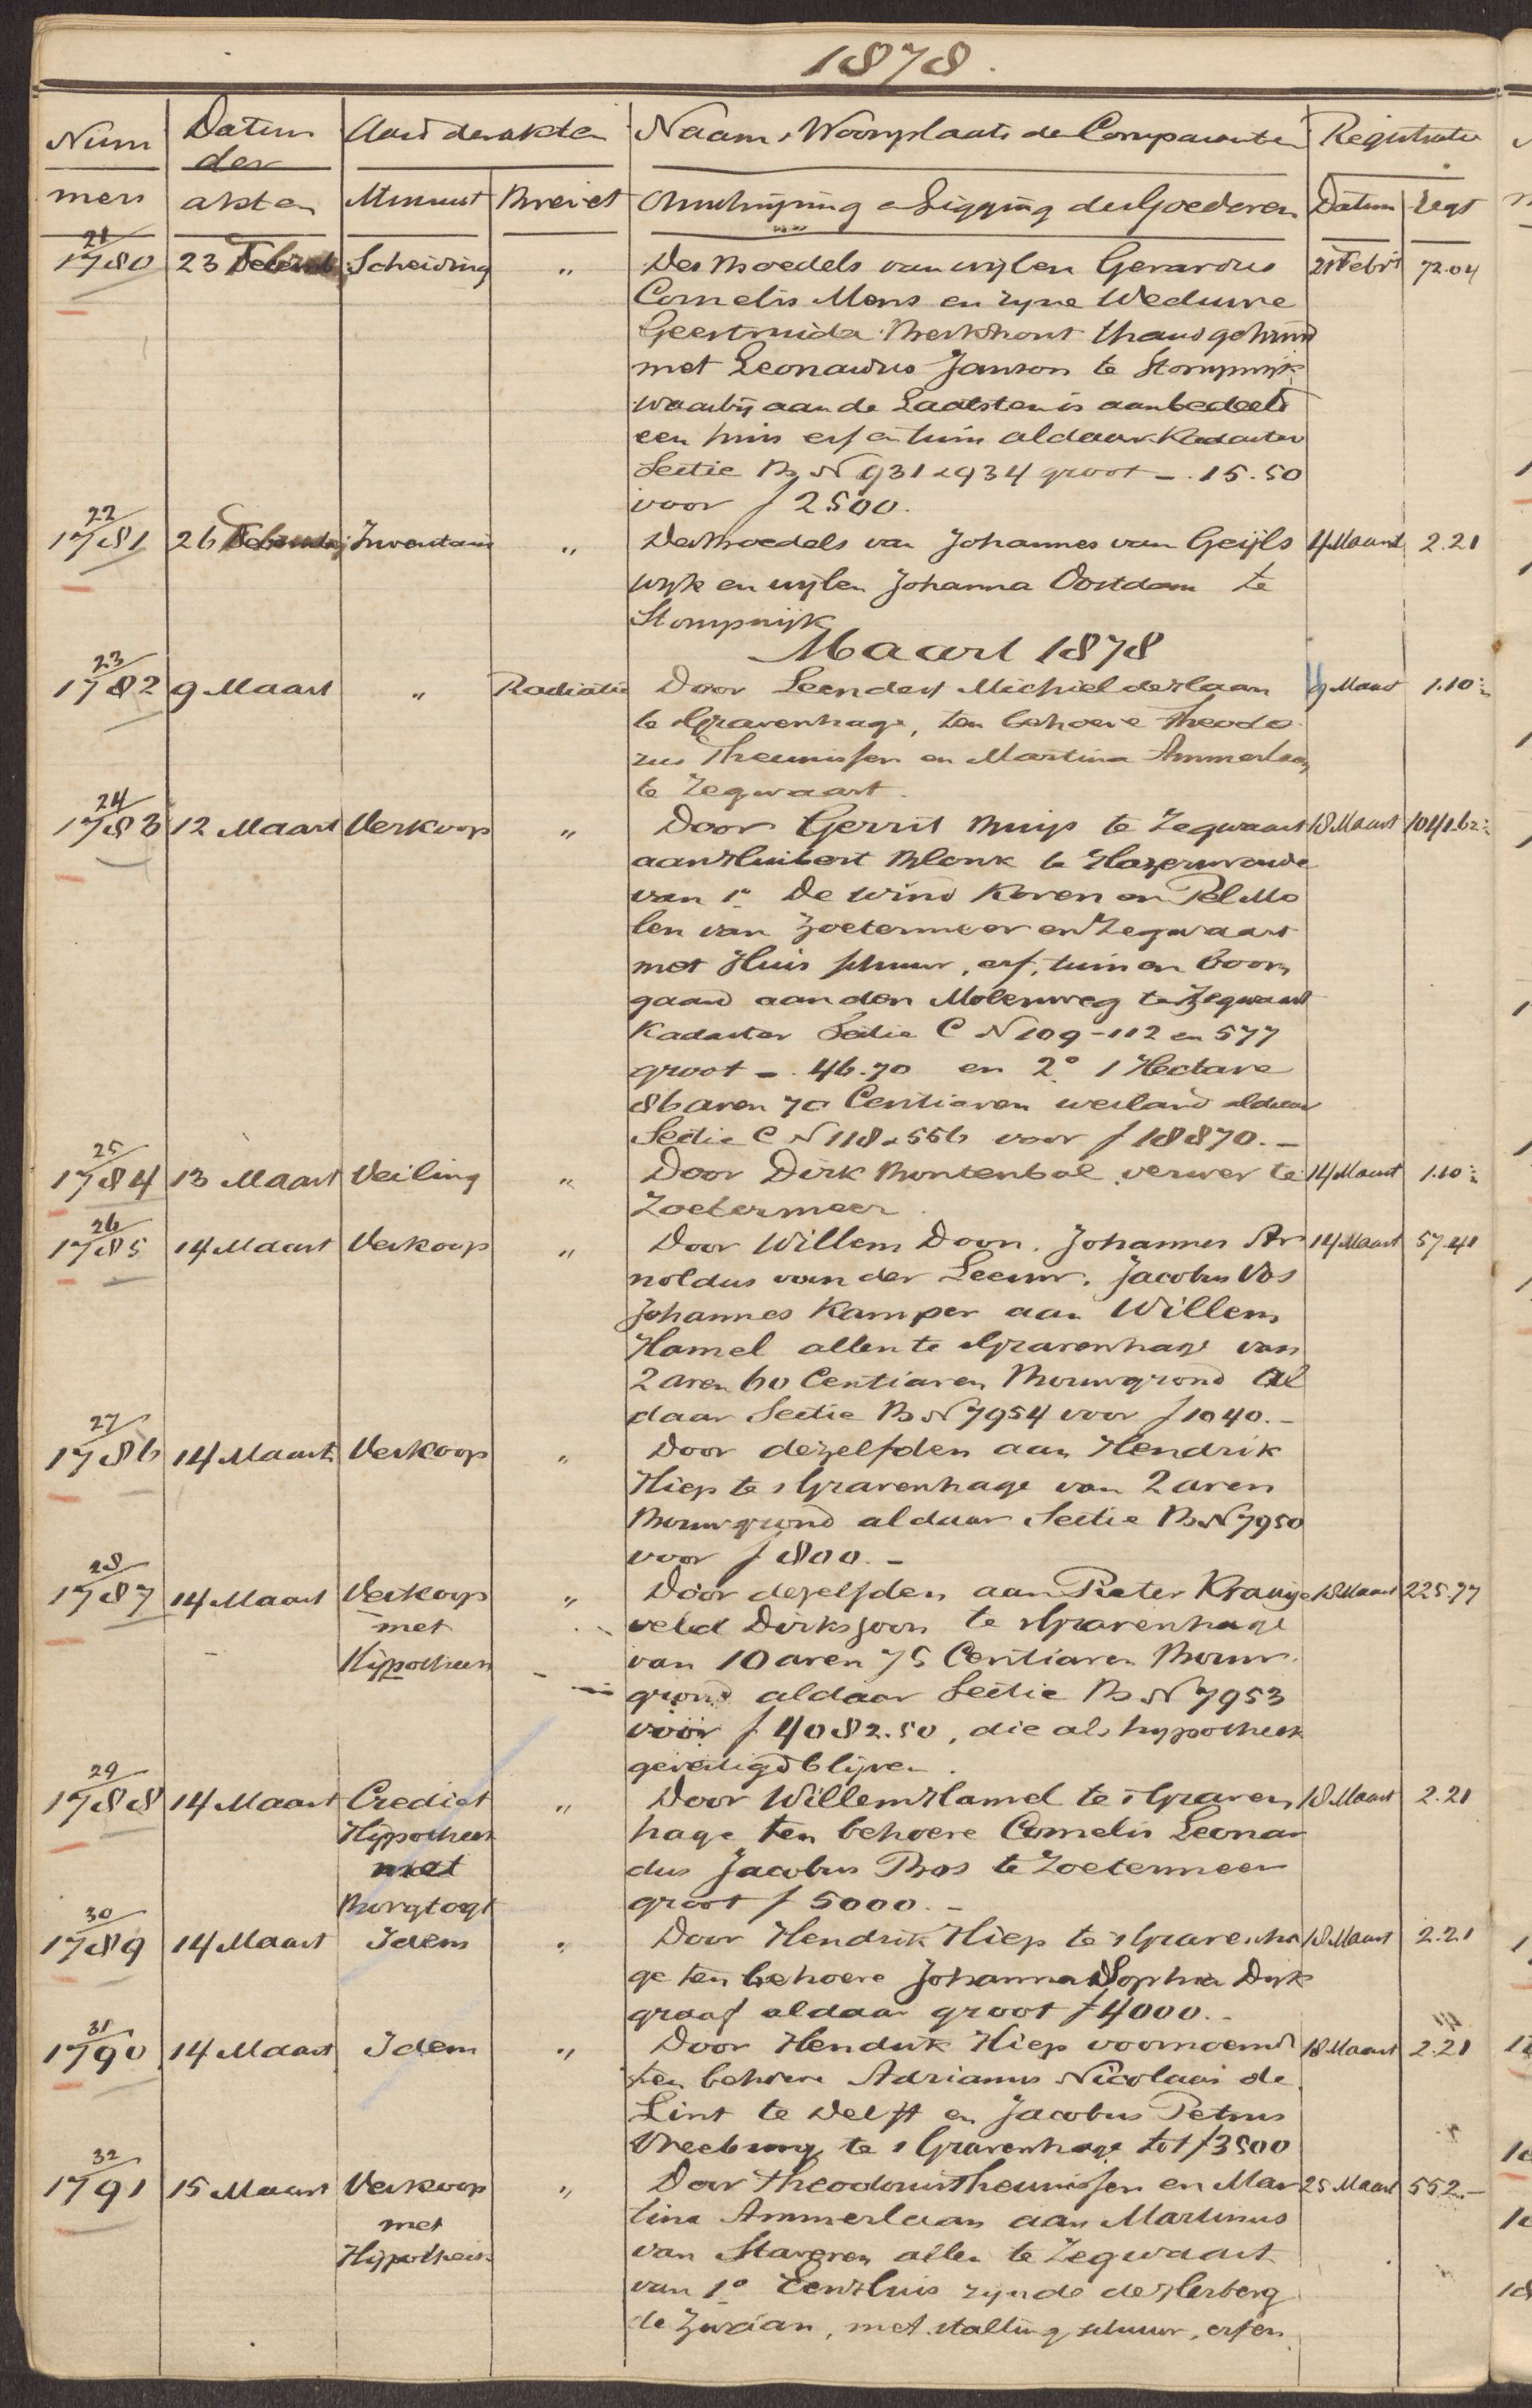 1878.
Num Datum Aard der akten Naam, Woonplaats der Comparanten Registratie
der
mers akten Minuut Brevet Omschrijving en Ligging der Goederen Datum Regt
21
1780 23 Februarij Scheiding " Des Boedels van wijlen Gerardus 25 Febrij 72.04
Cornelis Mons en zijne Weduwe
Geertruida Berkhout thans gehuwd
met Leonardus Janson te Stompwijk
waarbij aan de Laatsten is aanbedeeld
een huis erf en tuin aldaar Kadaster
Sectie B N 931 & 934 groot -. 15.50
voor f 2500.
22
1781 26 Februarij Inventaris " Des Boedels van Johannes van Geijls 4 Maart 2.21
wijk en wijlen Johanna Oostdam te
Stompwijk
Maart 1878
23
1782 9 Maart " Radiatie Door Leendert Michiel der Laan 9 Maart 1.10
te sGravenhage, ten behoeve Theodo
rus Theunissen en Martina Ammerlaan
te Zegwaart.
24
1783 12 Maart Verkoop " Door Gerrit Buijs te Zegwaart 18 Maart 1041.62
aan Huibert Blonk te Hazerswoude
van 1º De Wind Koren en Pel Mo
len van Zoetermeer en Zegwaart
met Huis schuur, erf, tuin en boom
gaard aan den Molenweg te Zegwaart
Kadaster Sectie C N 109-112 en 577
groot -. 46.70 en 2º 1 Hectare
86 aren 70 Centiaren weiland aldaar
Sectie C N 118 & 556 voor f 18870.-
25
1784 13 Maart Veiling " Door Dirk Bontenbal, verwer te 14 Maart 1.10
Zoetermeer
26
1785 14 Maart Verkoop " Door Willem Doorn, Johannes Ar 14 Maart 57.41
noldus van der Leeuw, Jacobus Vos
Johannes Kamper aan Willem
Hamel allen te sGravenhage van
2 aren 60 Centiaren Bouwgrond al
daar Sectie B N 7954 voor f 1040.-
27
1786 14 Maart Verkoop " Door dezelfden aan Hendrik
Hiep te sGravenhage van 2 aren
Bouwgrond aldaar Sectie B N 7950
voor f 800.-
28
1787 14 Maart Verkoop " Door dezelfden aan Pieter Kraije 18 Maart 225.77
met veld Dirkszoon te sGravenhage
Hijpotheek van 10 aren 75 Centiaren Bouw
grond aldaar Sectie B N 7953
voor f 4082.50, die als hypotheek
gevestigd blijven.
29
1788 14 Maart Crediet " Door Willem Hamel te sGraven 18 Maart 2.21
Hijpotheek hage ten behoeve Cornelis Leonar
met dus Jacobus Bos te Zoetermeer
Borgtogt groot f 5000.-
30
1789 14 Maart Idem " Door Hendrik Hiep te sGravenha 18 Maart 2.21
ge ten behoeve Johanna Sophia Dijk
graaf aldaar groot f 4000.-
31
1790 14 Maart Idem " Door Hendrik Hiep voornoemd 18 Maart 2.21
ten behoeve Adrianus Nicolaas de
Lint te Delft en Jacobus Petrus
Vreeburg te sGravenhage tot f 3500
32
1791 15 Maart Verkoop " Door Theodorus Theunissen en Mar 25 Maart 552.-
met tina Ammerlaan aan Martinus
Hijpotheek van Staveren allen te Zegwaart
van 1º Een Huis zijnde de Herberg
de Zwaan, met stalling schuur, erf en